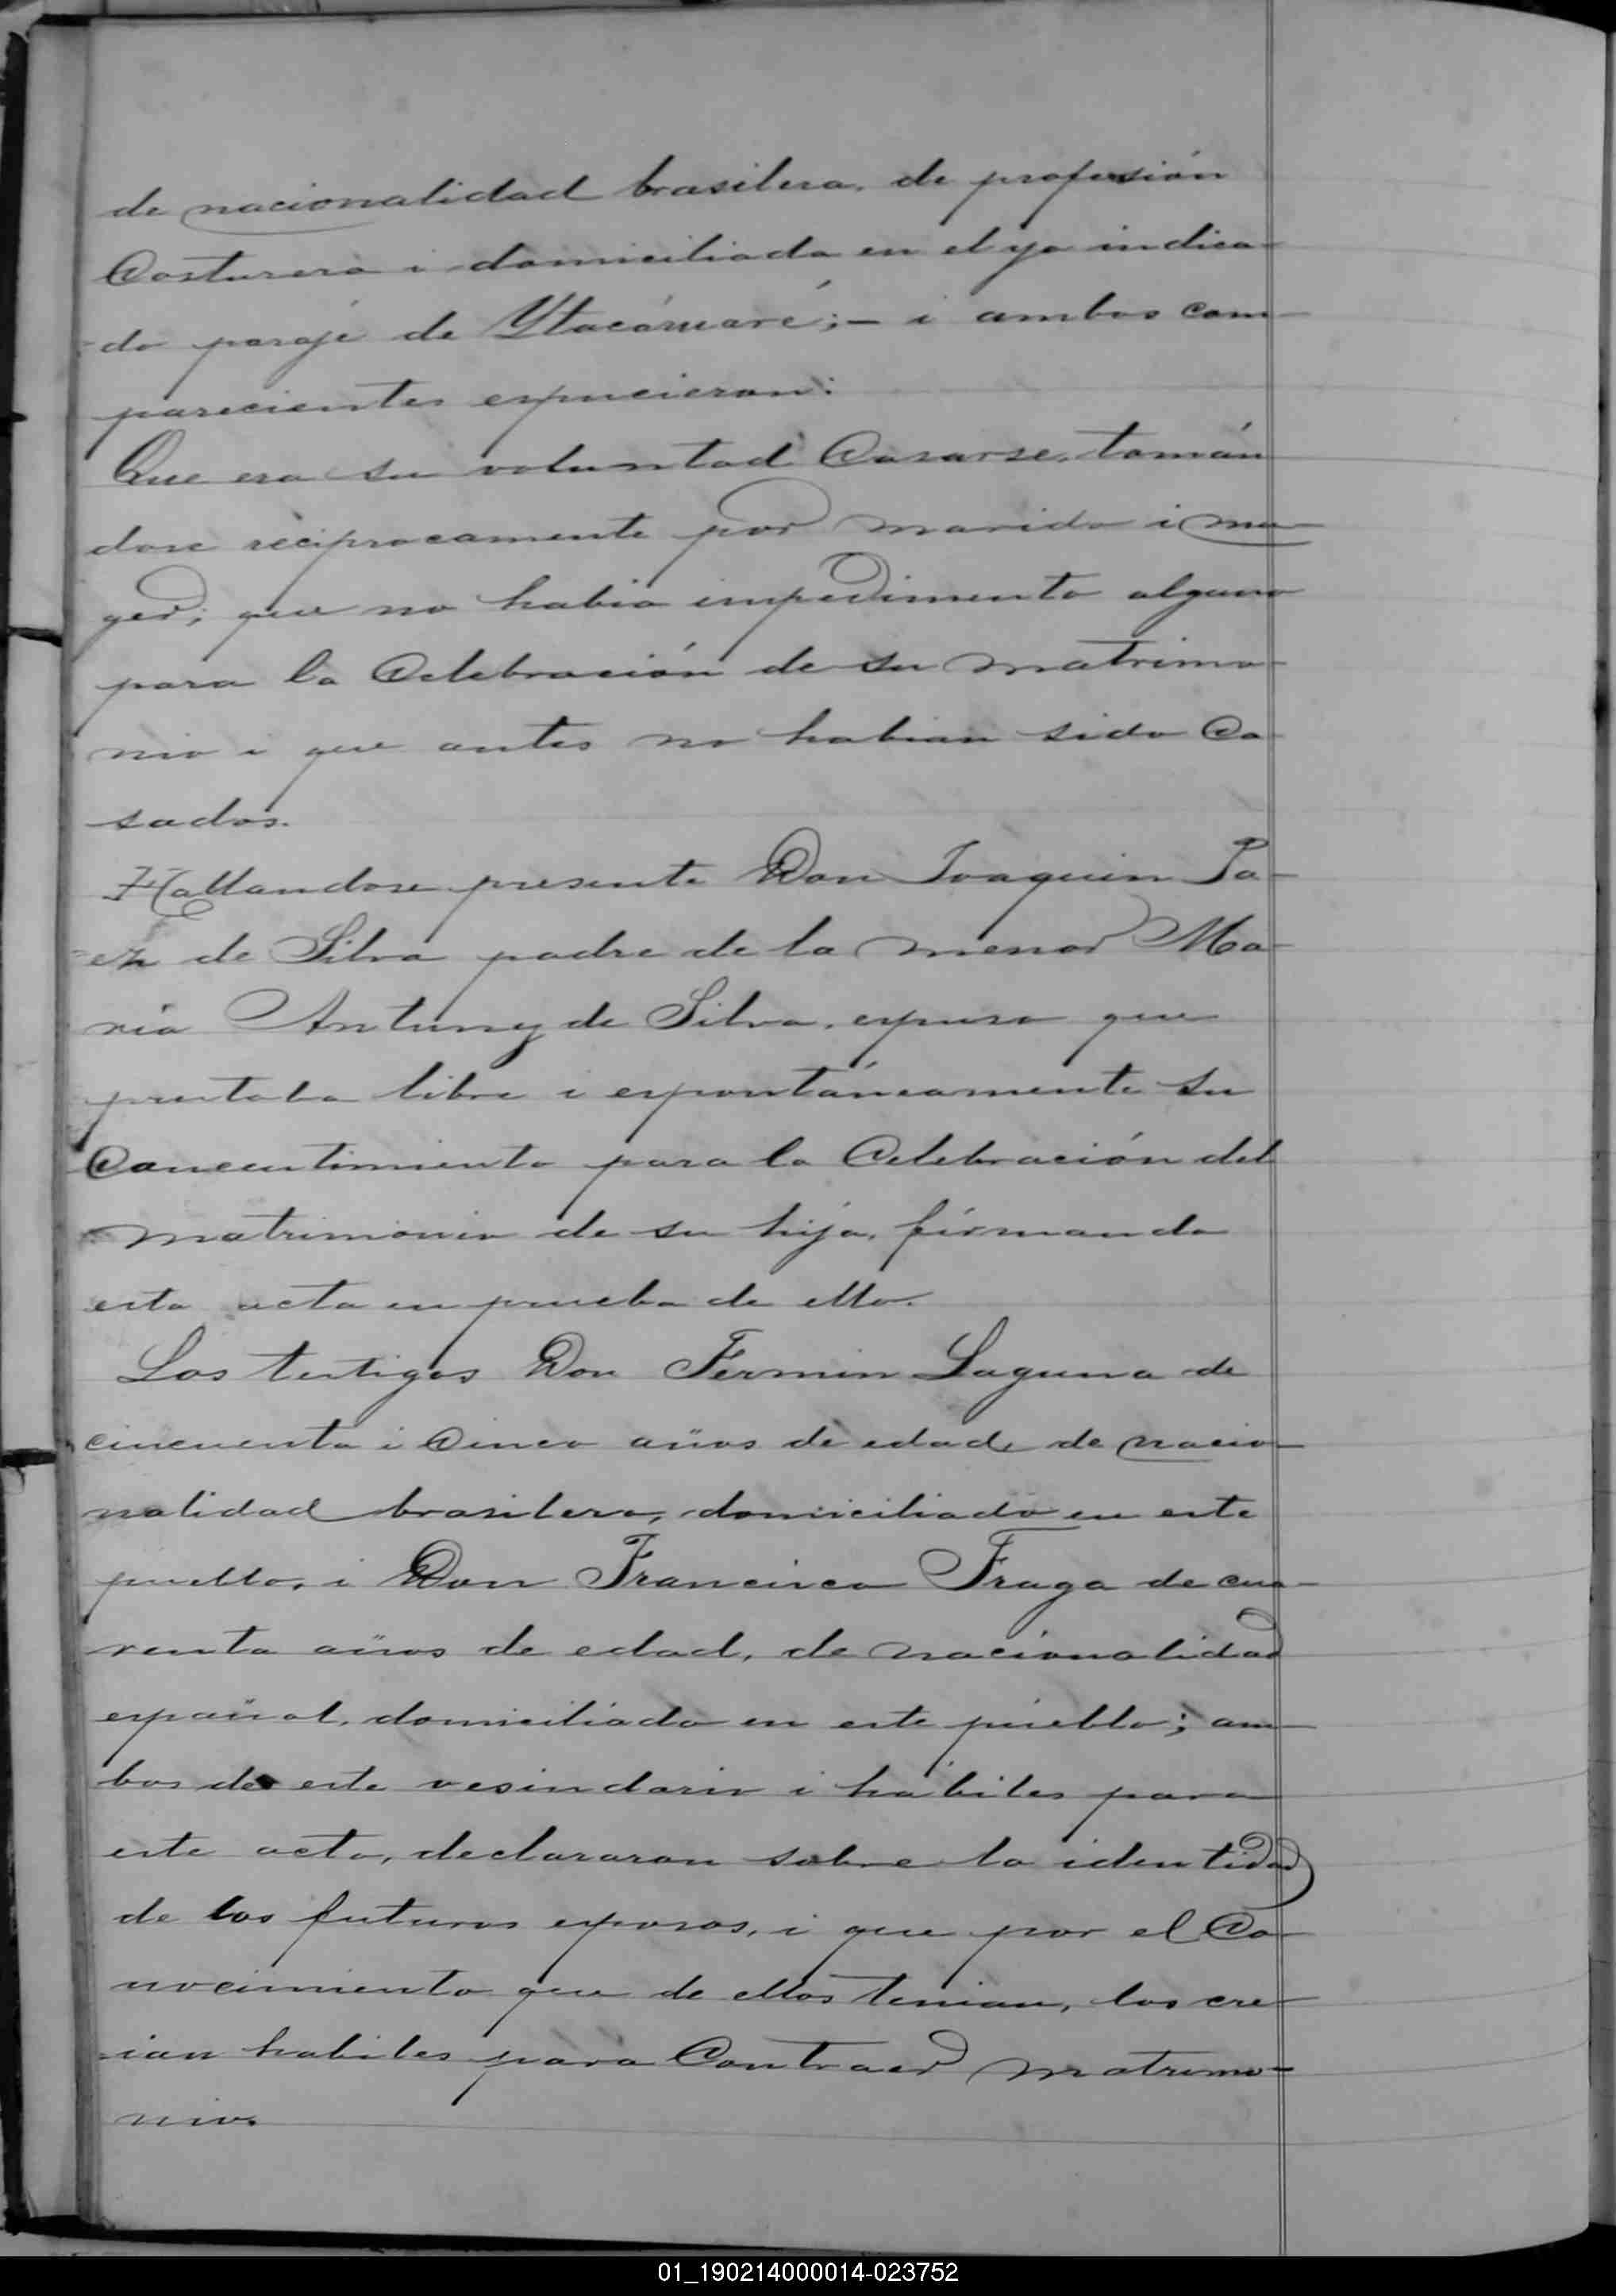 de nacionalidad brasilera, de profesión
Costurera i domiciliada en el ya indica
do paraje de Ytacómaré;- i ambos com-
parecientes espucieron:
Que era su voluntad Casarse, tomán
dose reciprocamente por marido i mu-
ger; que no habia impedimento alguno
para la Celebración de su matrimo-
nio i que antes no habian sido Ca-
sados.
Hallandose presente Don Joaquin Pa-
ez de Silva padre de la menor Ma-
ria Antuny de Silva, espuso que
prestaba libre i espontáneamente su
Concentimiento para la Celebración del
matrimonio de su hija, firmando
esta acta en prueba de ello.
Los testigos Don Fermin Laguna de
cincuenta i Cinco años de edad, de nacio-
nalidad brasilera, domiciliado en este
pueblo, i Don Francisco Fraga de cua-
renta años de edad, de nacionalidad
español, domiciliado en este pueblo; am-
bos de este vesindario i hábiles para
este acto, declararon sobre la identidad
de los futuros esposos, i que por el Co-
nocimiento que de ellos tenian, los cre-
ian habiles para Contraer matrimo-
nio.
01_190214000014-023752